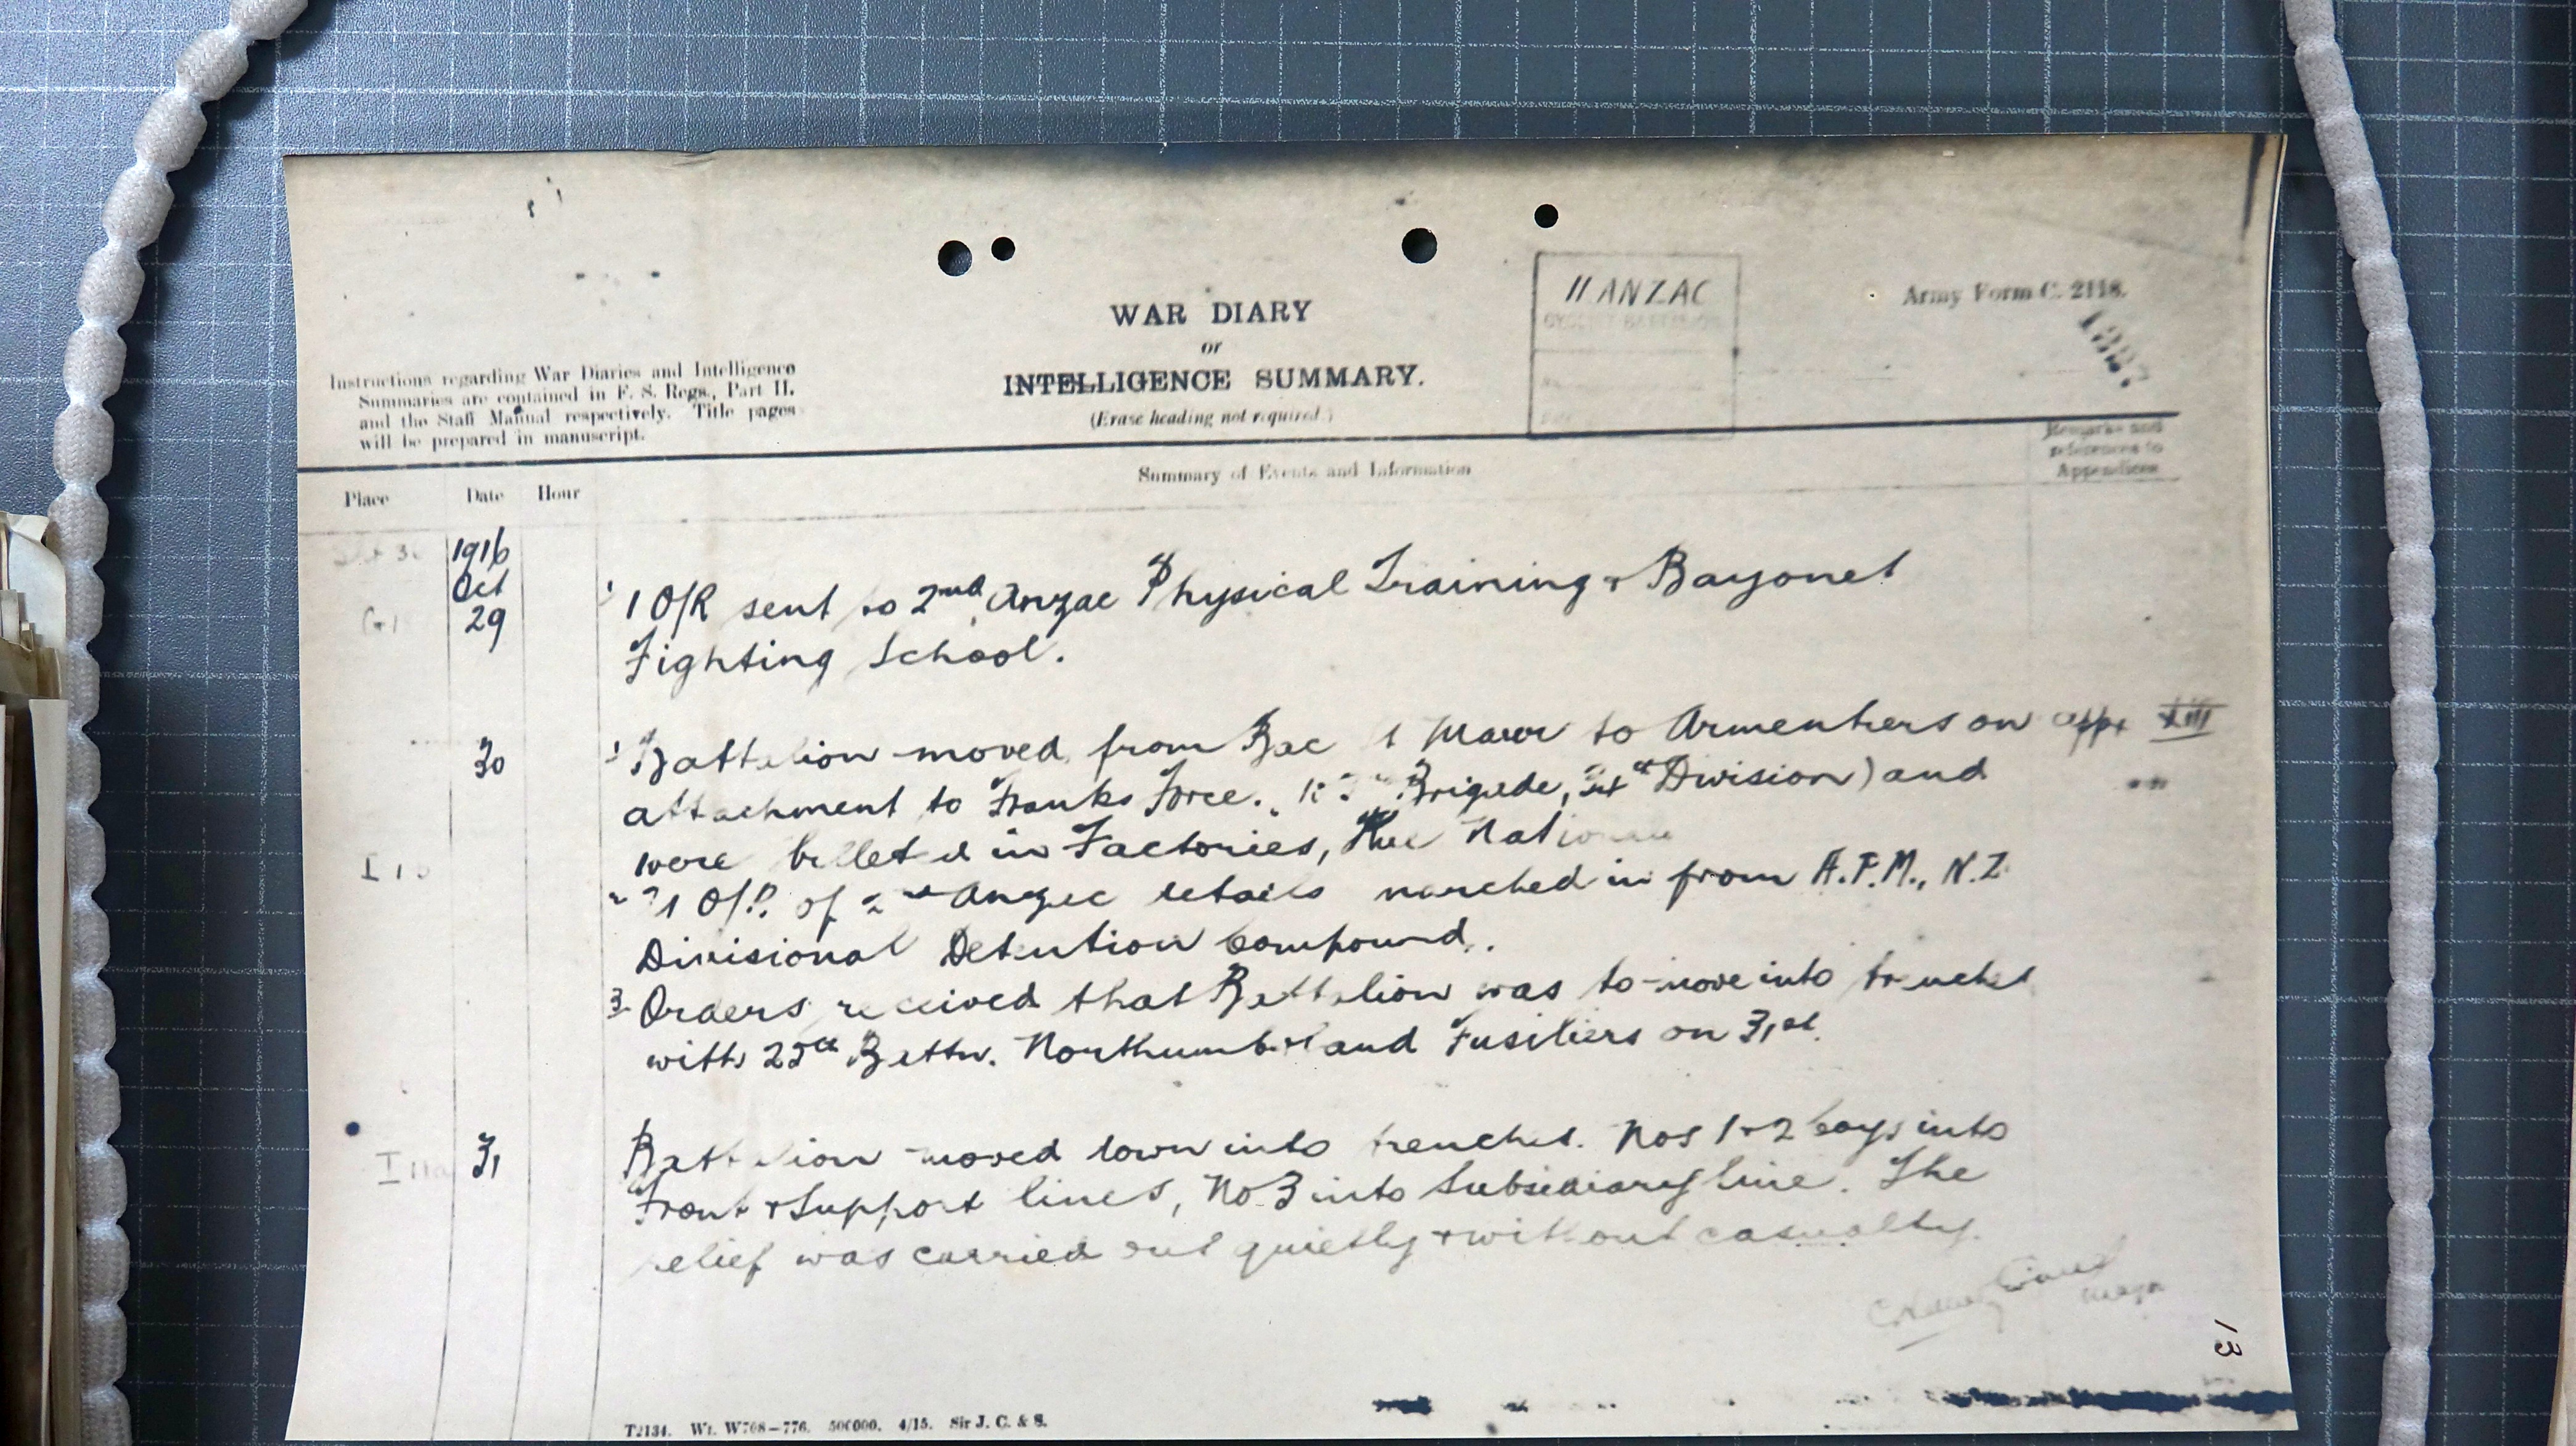 WAR DIARY
or
INTELLIGENCE SUMMARY.
(Erase heading not required.)
Instructions regarding War Diaries and Intelligence
Summaries are contained in F. S. Regs., Part II.
and the Staff Manual respectively. Title pages
will be prepared in manuscript.
II ANZAC
CYCLIST BATTALION
Army Form C. 2118.
Place Date Hour
Summary of Events and Information
Remarks and
references to
Appendices
1916
Oct
29
1 O/R sent to 2nd Anzac Physical Training & Bayonet
Fighting School.
30
1 Battalion moved from Bac Maur to Armentiers on appx XIII
attachment to Franks Force. Brigade, Division) and
were billeted in Factories, Rue
2 O/R. of 2nd Anzac details marched in from A.P.M., N.Z.
Divisional Detention Compound.
3 Orders received that Battalion was to move into trenches
with 25th Battn. Northumberland Fusiliers on 31st.
31
Battalion moved down into trenches. Nos 1 & 2 Coys into
Front & Support lines, No 3 into Subsidiary line. The
relief was carried out quietly & without casualty.
Major
13
T2134. Wt. W708—776. 500000. 4/15. Sir J. C. & S.